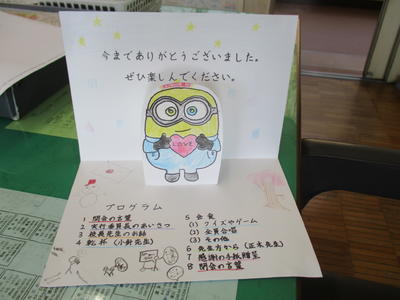 今までありがとうございました。
ぜひ楽しんでください。
LOVE
プログラム
1 開会の言葉
2 実行委員長のあいさつ
3 校長先生のお話
4 乾杯(小針先生)
5 会食
(1) クイズやゲーム
(2) 全員合唱
(3) その他
6 先生方から(正木先生)
7 感謝の手紙贈呈
8 閉会の言葉